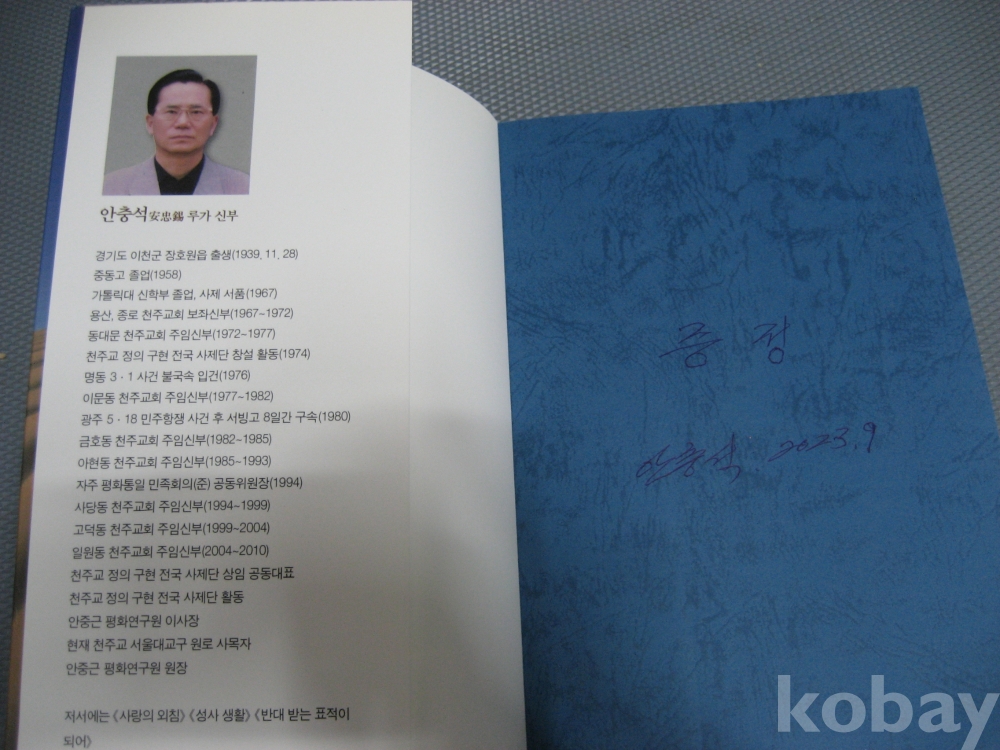 안충석安忠錫 루가 신부
경기도 이천군 장호원읍 출생(1939. 11. 28)
중동고 졸업(1958)
가톨릭대 신학부 졸업, 사제 서품(1967)
용산, 종로 천주교회 보좌신부(1967~1972)
동대문 천주교회 주임신부(1972~1977)
천주교 정의 구현 전국 사제단 창설 활동(1974)
명동 3 · 1 사건 불국속 입건(1976)
이문동 천주교회 주임신부(1977~1982)
광주 5 · 18 민주항쟁 사건 후 서빙고 8일간 구속(1980)
금호동 천주교회 주임신부(1982~1985)
아현동 천주교회 주임신부(1985~1993)
자주 평화통일 민족회의(준) 공동위원장(1994)
사당동 천주교회 주임신부(1994~1999)
고덕동 천주교회 주임신부(1999~2004)
일원동 천주교회 주임신부(2004~2010)
천주교 정의 구현 전국 사제단 상임 공동대표
천주교 정의 구현 전국 사제단 활동
안중근 평화연구원 이사장
현재 천주교 서울대교구 원로 사목자
안중근 평화연구원 원장
저서에는 《사랑의 외침》《성사 생활》《반대 받는 표적이
되어》
증 정
안충석 2023. 9
kobay